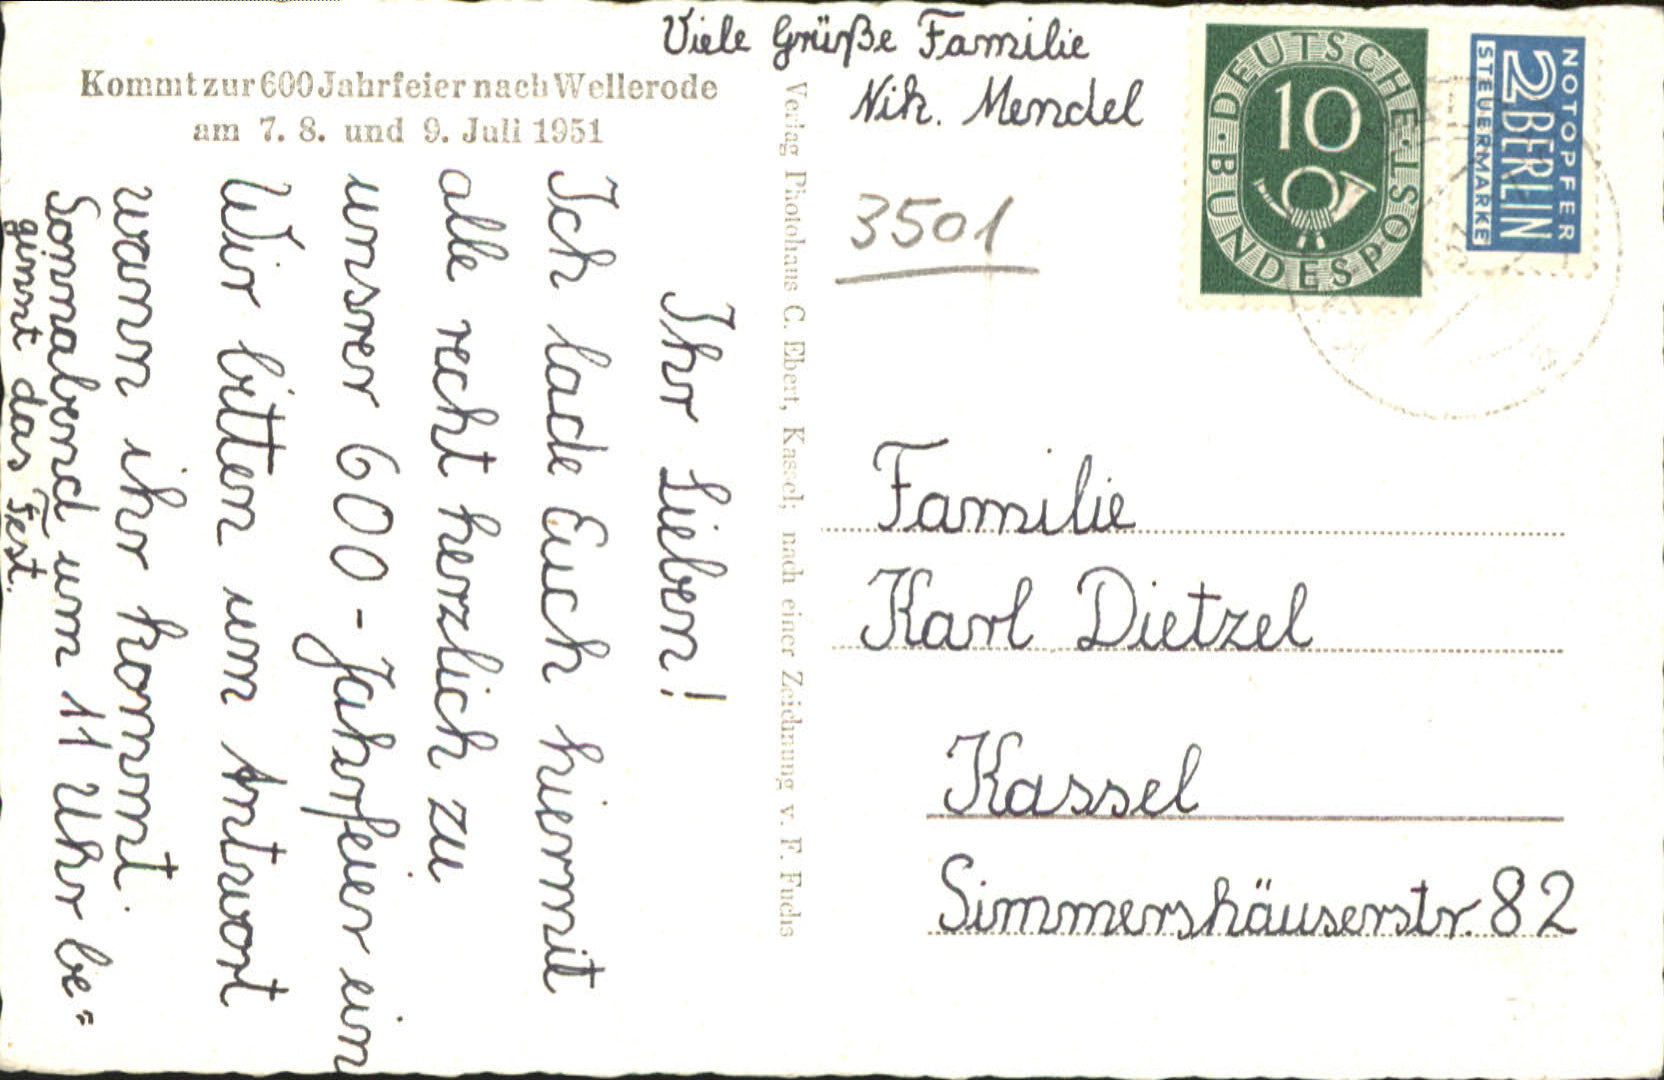 Viele Grüße Familie
Nik. Mendel
Kommt zur 600 Jahrfeier nach Wellerode
am 7. 8. und 9. Juli 1951
Ihr Lieben!
Ich lade Euch hiermit
alle recht herzlich zu
unsrer 600-Jahrfeier ein
Wir bitten um Antwort
wann ihr kommt.
Sonnabend um 11 Uhr be=
ginnt das Fest.
Verlag Photohaus C. Ebert, Kassel; nach einer Zeichnung v. F. Fuchs
3501
DEUTSCHE BUNDESPOST
10
NOTOPFER
2 BERLIN
STEUERMARKE
Familie
Karl Dietzel
Kassel
Simmershäuserstr. 82